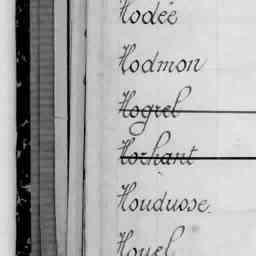 Hodée
Hodmon
Hogrel
Horhant
Houduose.
Houel